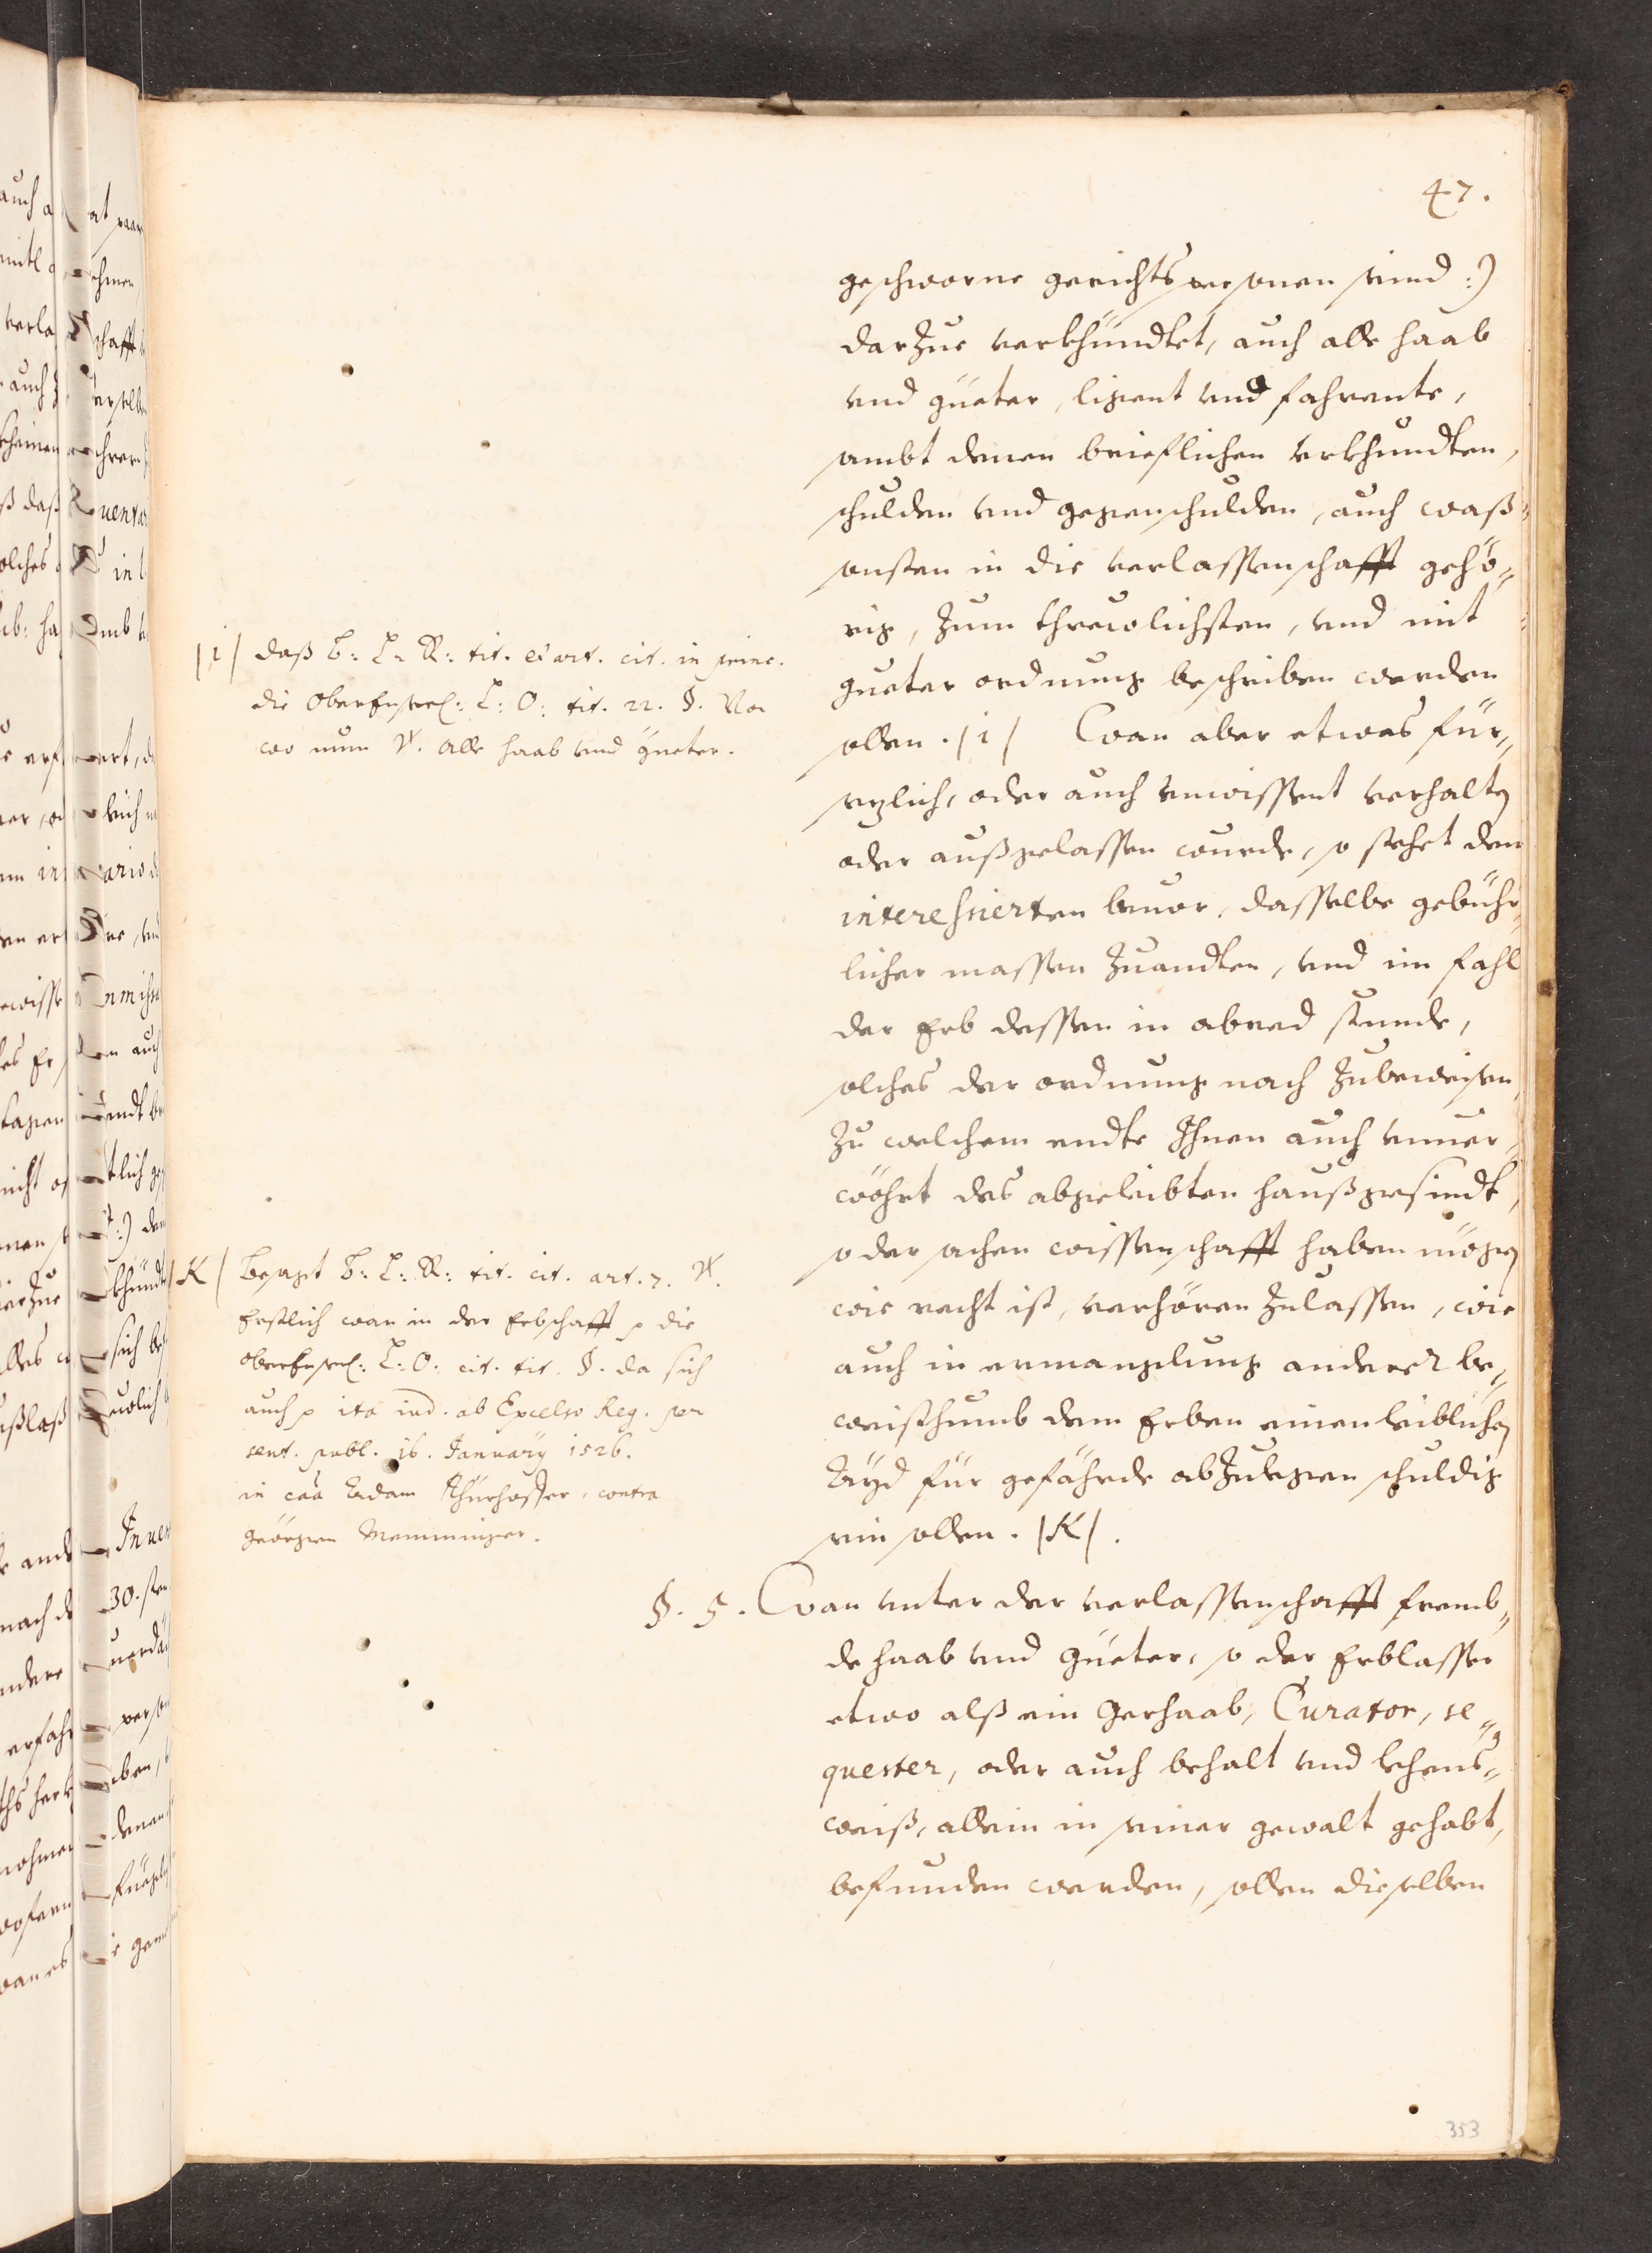 47.
geschworne gerichts personen seind :)
darzue verkhündtet, auch alle haab
vnd güeter, ligent vnd fahrente,
sambt denen brieflichen vrkhundten,
schulden vnd gegenschulden, auch waß
sonsten in die verlassenschafft gehö„
rig, zum threwlichsten, vnd mit
gueter ordnung beschriben werden
sollen. /i/ Wan aber etwas für„
sezlich, oder auch vnwissent verhalten
oder außgelassen wurde, so stehet den
interessierten beuor, dasselbe gebühr„
licher massen zuandten, vnd im fahl
der Erb dessen in abred stunde,
solches der ordnung nach zubeweisen,
zu welchem endte Ihnen auch vnuer„
wöhrt des abgeleibten haußgesindt,
so der sachen wissenschafft haben mögen
wie recht ist, verhören zulassen, wie
auch in ermanglung anderer be„
weisthumb dem Erben einen leiblichen
Ayd für gefährde abzulegen schuldig
sein sollen. /K/.
§. 5. Wan vnter der verlassenschafft fremb„
de haab vnd güeter, so der Erblasser
etwo alß ein Gerhaab, Curator, se„
quester, oder auch behalt vnd lehens„
weiß, allein in seiner gewalt gehabt,
befunden werden, sollen dieselben
/i/ daß B: L: R: tit. et art. cit. in princ.
die Oberen L: O: tit. 22. §. Von
wo nun V. alle haab vnd güeter.
/K/ Besagt B: L: R: tit. cit. art. 7. V.
Erstlich wan in der Erbschafft p die
L: O: cit. tit. §. da sich
auch p ita iud. ab Excelso Reg. per
sent. publ. 16. January 1526.
in caã Adam contra
Geörgen Memminger.
353